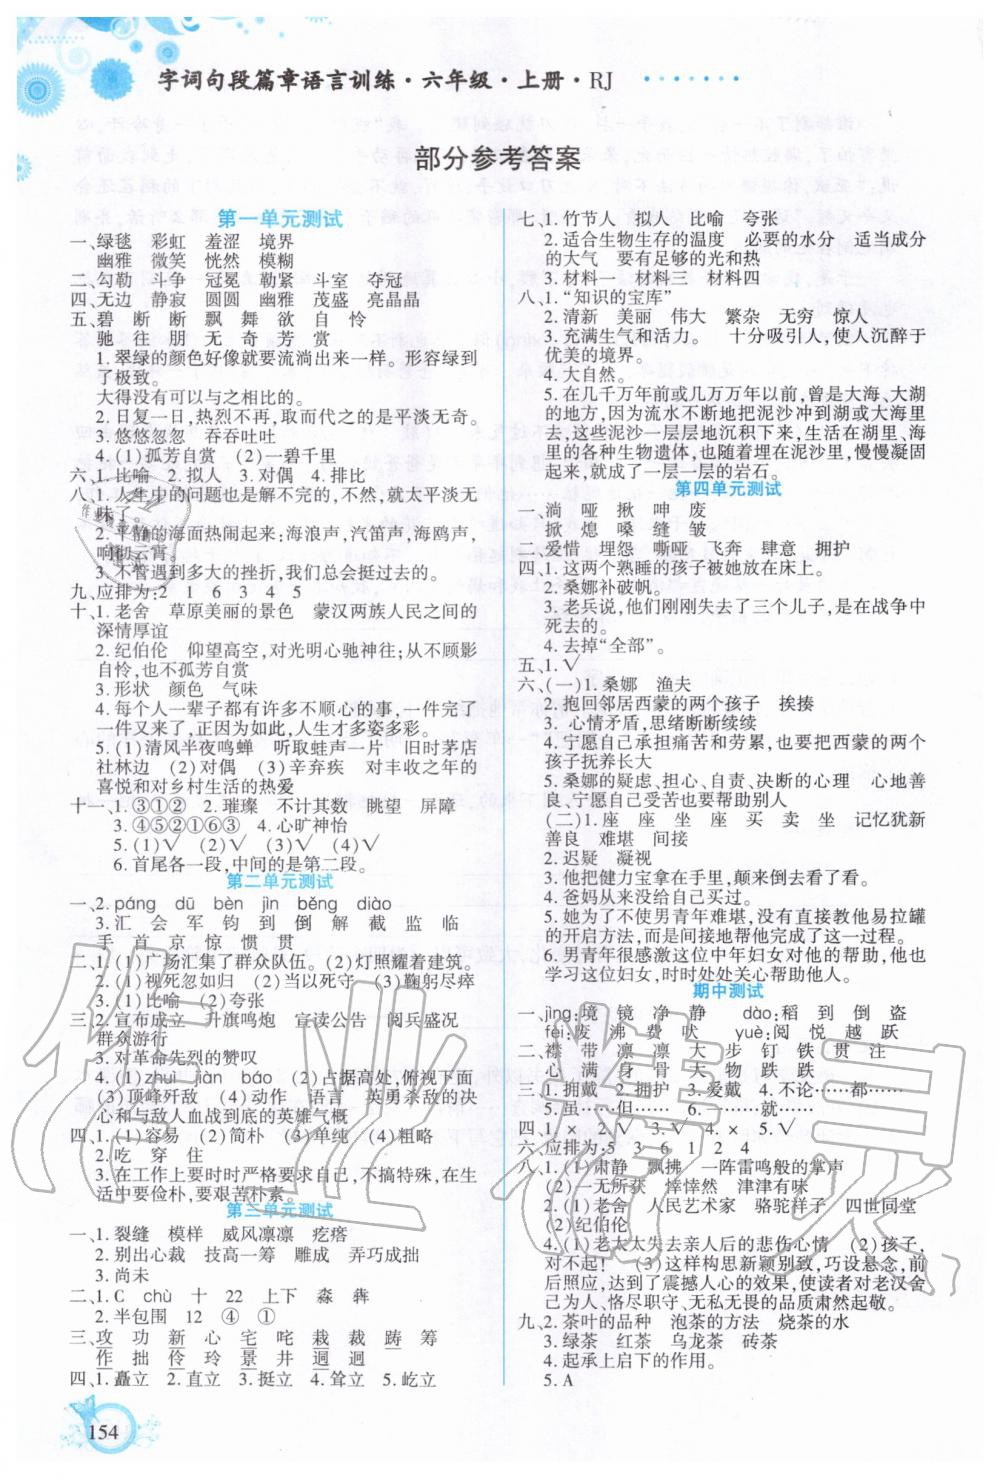 字词句段篇章语言训练·六年级·上册·RJ
部分参考答案
第一单元测试
一、绿毯 彩虹 羞涩 境界
幽雅 微笑 恍然 模糊
二、勾勒 斗争 冠冕 勒紧 斗室 夺冠
四、无边 静寂 圆圆 幽雅 茂盛 亮晶晶
五、碧 断 断 飘 舞 欲 自 怜
驰 舍 朋 无 奇 芳 赏
1. 翠绿的颜色好像就要流淌出来一样。形容绿到
了极致。
大得没有可以与之相比的。
2. 日复一日,热烈不再,取而代之的是平淡无奇。
3. 悠悠忽忽 吞吞吐吐
4. (1)孤芳自赏 (2)一碧千里
六、1. 比喻 2. 拟人 3. 对偶 4. 排比
八、1. 人生中的问题也是解不完的,不然,就太平淡无
味了。
2. 平静的海面热闹起来;海浪声,汽笛声,海鸥声,
响彻云霄。
3. 不管遇到多大的挫折,我们总会挺过去的。
九、应排为:2 1 6 3 4 5
十、1. 老舍 草原美丽的景色 蒙汉两族人民之间的
深情厚谊
2. 纪伯伦 仰望高空,对光明心驰神往;从不顾影
自怜,也不孤芳自赏
3. 形状 颜色 气味
4. 每个人一辈子都有许多不顺心的事,一件完了
一件又来了,正因为如此,人生才多姿多彩。
5. (1)清风半夜鸣蝉 听取蛙声一片 旧时茅店
社林边 (2)对偶 (3)辛弃疾 对丰收之年的
喜悦和对乡村生活的热爱
十一、1. ③①② 2. 璀璨 不计其数 眺望 屏障
3. ④⑤②①⑥③ 4. 心旷神怡
5. (1)√ (2)√ (3)× (4)√
6. 首尾各一段,中间的是第二段。
第二单元测试
一、2. páng dū bèn jìn běng diào
3. 汇 会 军 钧 到 倒 截 监 临
手 首 京 惊 惯 贯
二、1. (1)广场汇集了群众队伍。(2)灯照耀着建筑。
2. (1)视死忽如归 (2)当以死守 (3)鞠躬尽瘁
3. (1)比喻 (2)夸张
三、2. 宣布成立 升旗鸣炮 宣读公告 阅兵盛况
群众游行
3. 对革命先烈的赞叹
4. (1)zhuì jiàn báo (2)占据高处,俯视下面
(3)顶峰歼敌 (4)动作 语言 英勇杀敌的决
心和与敌人血战到底的英雄气概
四、1. (1)容易 (2)简朴 (3)单纯 (4)粗略
2. 吃 穿 住
3. 在工作上要时时严格要求自己,不搞特殊,在生
活中要俭朴,要艰苦朴素。
第三单元测试
一、1. 裂缝 模样 威风凛凛 疙瘩
2. 别出心裁 技高一筹 雕成 弄巧成拙
3. 尚未
二、1. C chù 十 22 上下 淼 犇
2. 半包围 12 ④ ①
三、攻 功 新 心 宅 咤 栽 裁 踌 筹
作 拙 伶 玲 景 井 迥 迴
四、1. 矗立 2. 直立 3. 挺立 4. 耸立 5. 屹立
七、1. 竹节人 斗竹节人 比喻 夸张
2. 适合生物生存的温度 必要的水分 适当成分
的大气 要有足够的光和热
3. 材料一 材料三 材料四
八、1. “知识的宝库”
2. 清新 美丽 伟大 繁杂 无穷 惊人
3. 充满生气和活力。 十分吸引人,使人沉醉于
优美的境界。
4. 大自然。
5. 在几千万年前或几万万年以前,曾是大海、大湖
的地方,因为流水不断地把泥沙冲到湖或大海里
去,这些泥沙一层层地沉积下来,生活在湖里、海
里的各种生物遗体,也随着埋在泥沙里,慢慢凝固
起来,就成了一层一层的岩石。
第四单元测试
一、淌 哑 揪 呻 废
掀 熄 嗓 缝 皱
二、爱惜 埋怨 嘶哑 飞奔 肆意 拥护
四、1. 这两个熟睡的孩子被她放在床上。
2. 桑娜补破帆。
3. 老兵说,他们刚刚失去了三个儿子,是在战争中
死去的。
4. 去掉“全部”。
五、1. √
六、(一)1. 桑娜 渔夫
2. 抱回邻居西蒙的两个孩子 挨揍
3. 心情矛盾,思绪断断续续
4. 宁愿自己承担痛苦和劳累,也要把西蒙的两个
孩子抚养长大
5. 桑娜的疑虑、担心、自责、决断的心理 心地善
良、宁愿自己受苦也要帮助别人
(二)1. 座 座 坐 座 买 卖 坐 记忆犹新
善良 难堪 间接
2. 迟疑 凝视
3. 他把健力宝拿在手里,颠来倒去看了看。
4. 爸妈从来没给自己买过。
5. 她为了不使男青年难堪,没有直接教他易拉罐
的开启方法,而是间接地帮他完成了这一过程。
6. 男青年很感激这位中年妇女对他的帮助,他也
学习这位妇女,时时处处关心帮助他人。
期中测试
一、jìng:境 镜 净 静 dào:稻 到 倒 盗
fèi:废 沸 费 吠 yuè:阅 悦 越 跃
二、襟 带 凛 凛 大 步 钉 铁 贯 注
心 满 身 骨 天 物 跌 跌
三、1. 拥戴 2. 拥护 3. 爱戴 4. 不论……都……
5. 虽……但…… 6. 一……就……
四、1. × 2. √ 3. √ 4. × 5. √
六、应排为:5 3 6 1 2 4
八、1. (1)肃静 飘拂 一阵雷鸣般的掌声
(2)一无所获 悻悻然 津津有味
2. (1)老舍 人民艺术家 骆驼祥子 四世同堂
(2)纪伯伦
4. (1)老太太失去亲人后的悲伤心情 (2)孩子,
对不起! (3)这样构思新颖别致,巧设悬念,前
后照应,达到了震撼人心的效果,使读者对老汉舍
己为人、恪尽职守、无私无畏的品质肃然起敬。
九、2. 茶叶的品种 泡茶的方法 烧茶的水
3. 绿茶 红茶 乌龙茶 砖茶
4. 起承上启下的作用。
5. A
154
作业精灵